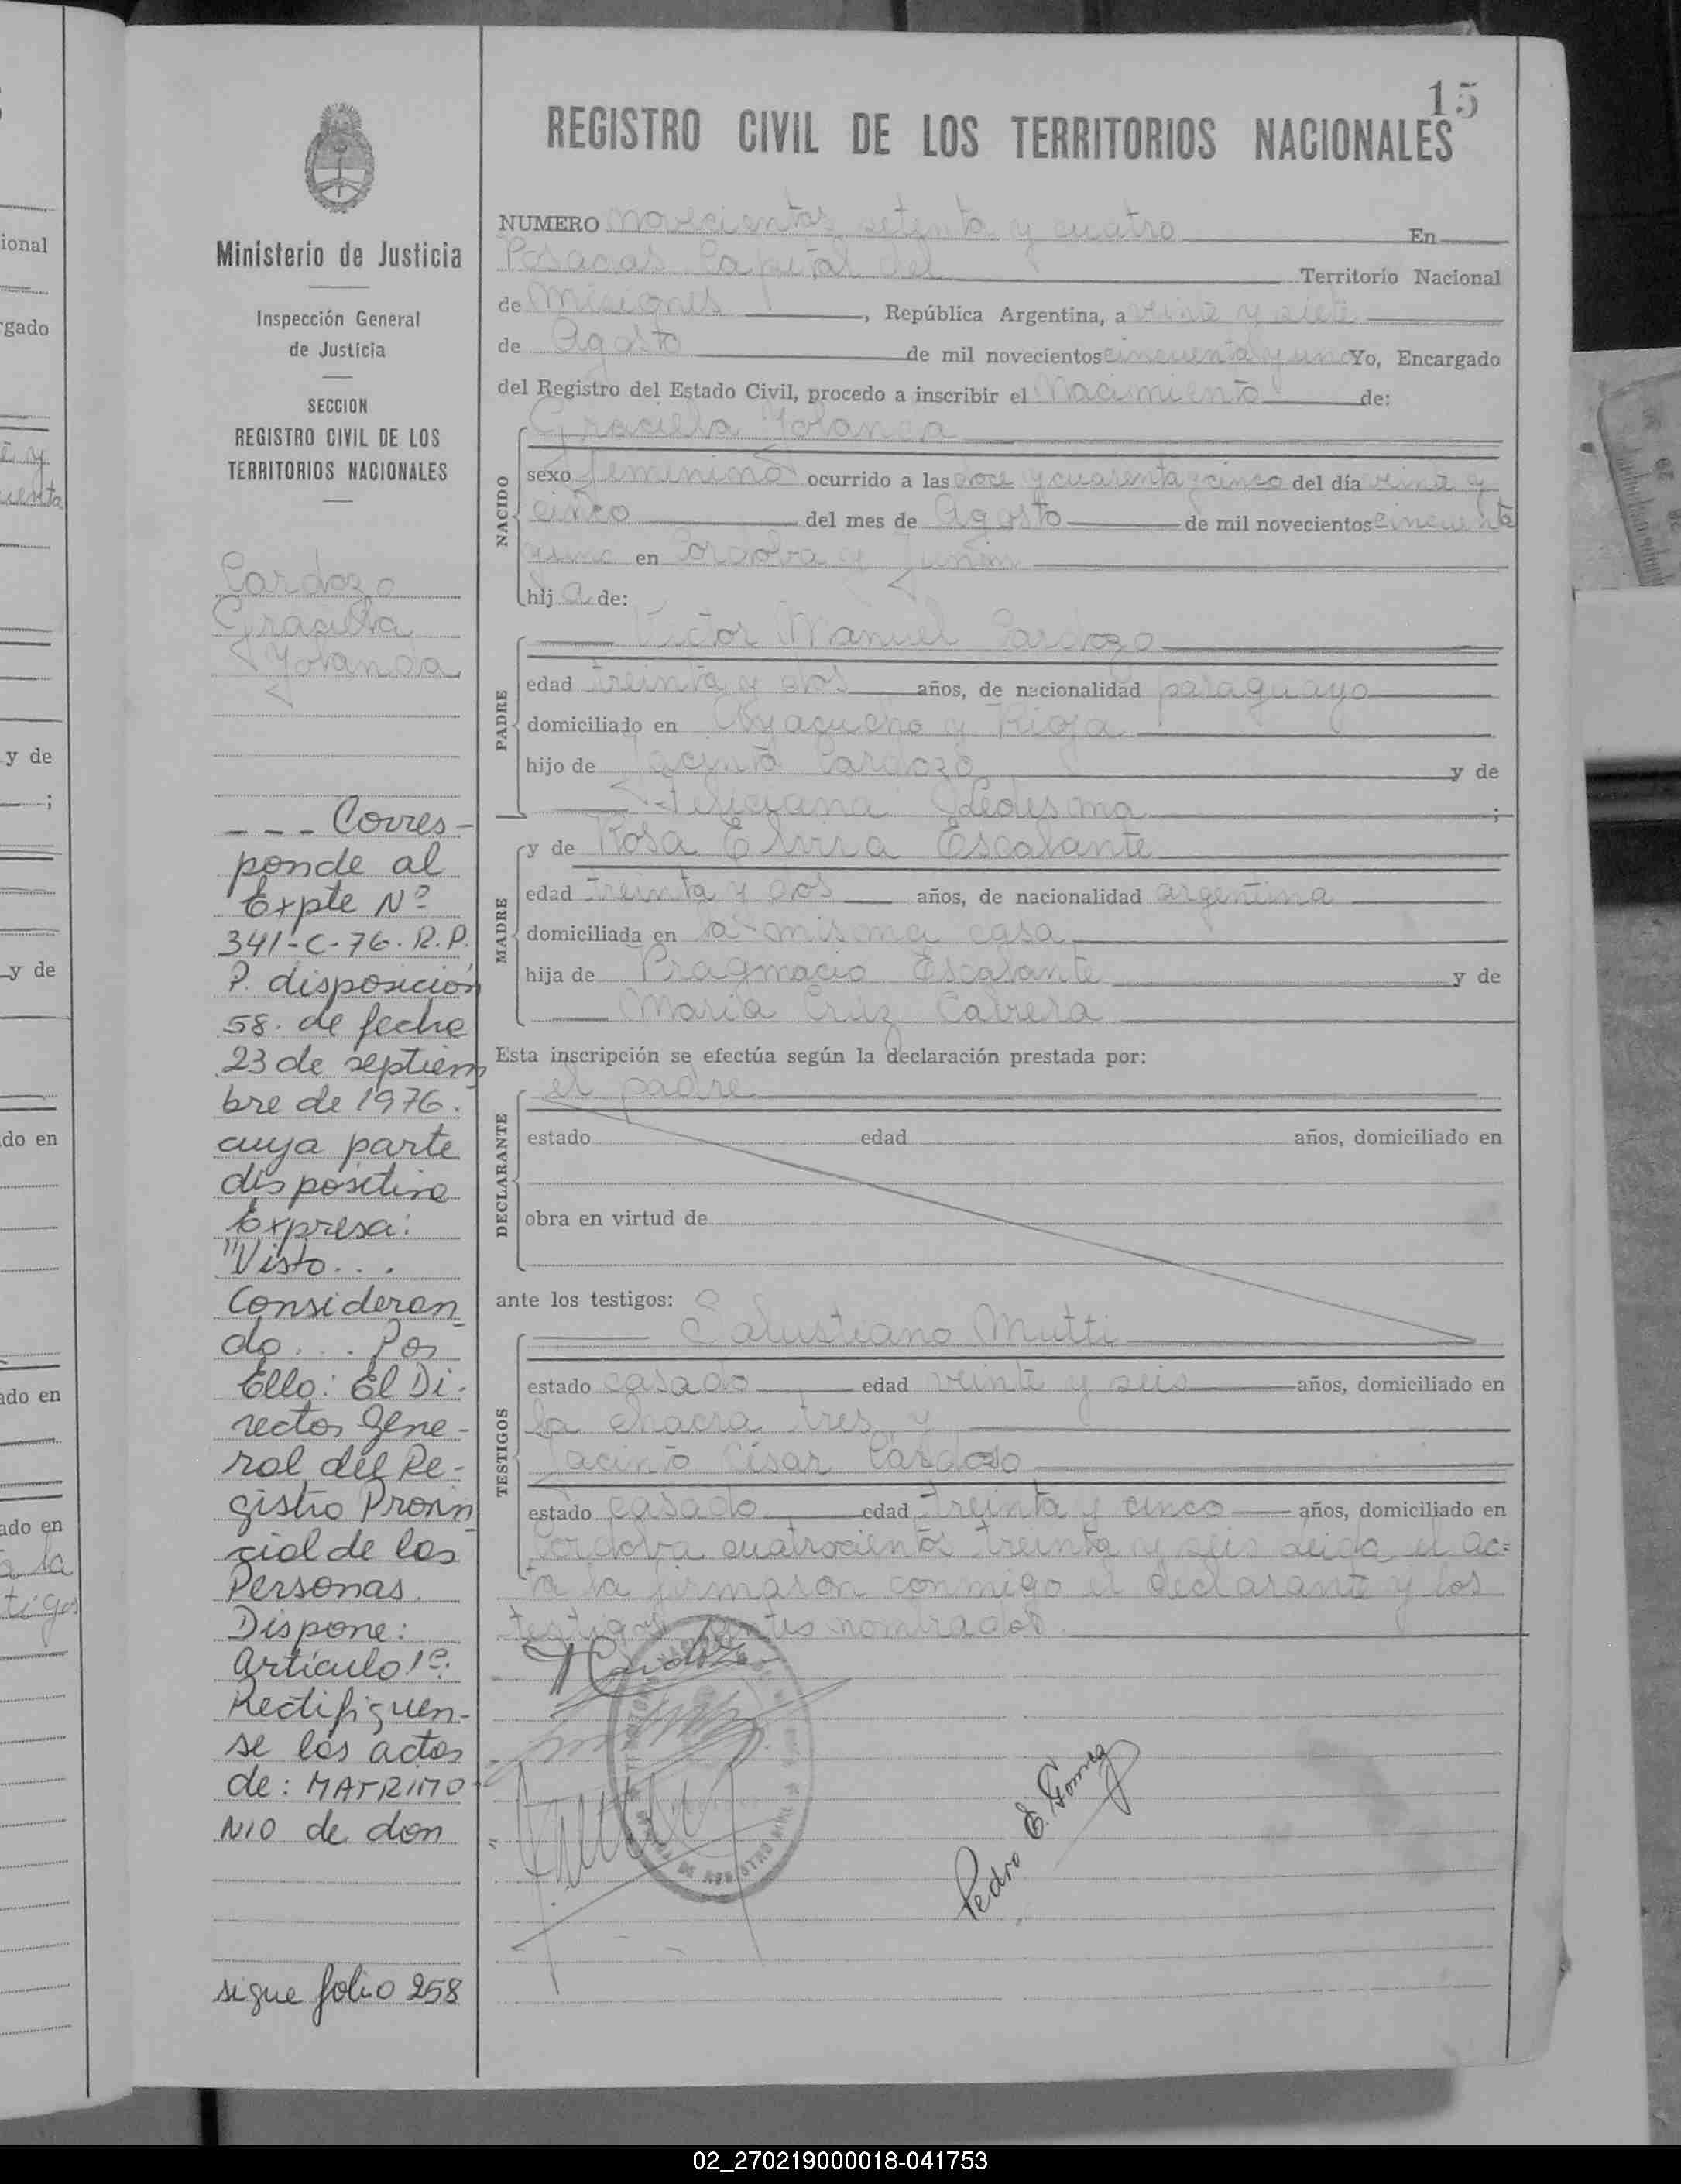 15
REGISTRO CIVIL DE LOS TERRITORIOS NACIONALES
Ministerio de Justicia
Inspección General
de Justicia
SECCION
REGISTRO CIVIL DE LOS
TERRITORIOS NACIONALES
Cardozo
Graciela
Yolanda
--- Corres-
ponde al
Expte Nº
341-C-76. R.P.
P. disposición
58. de fecha
23 de septiem
bre de 1976.
cuya parte
dispositiva
Expresa:
"Visto...
Consideran
do... Por
Ello: El Di.
rector Gene-
ral del Re-
gistro Provin
cial de las
Personas.
Dispone:
Artículo 1º:
Rectifiquen-
se las actas
de: MATRIMO-
NIO de don
sigue folio 258
NUMERO novecientos setenta y cuatro En
Posadas Capital del Territorio Nacional
de Misiones, República Argentina, a veinte y siete
de Agosto de mil novecientos cincuenta y uno Yo, Encargado
del Registro del Estado Civil, procedo a inscribir el Nacimiento de:
Graciela Yolanda
NACIDO
sexo femenino ocurrido a las doce y cuarenta y cinco del día veinte y
cinco del mes de Agosto de mil novecientos cincuenta
y uno en Córdova y Junín
hij a de:
PADRE
Victor Manuel Cardozo
edad treinta y dos años, de nacionalidad paraguayo
domiciliado en Ayacucho y Rioja
hijo de Jacinto Cardozo y de
Feliciana Ledesma;
MADRE
y de Rosa Elvira Escalante
edad treinta y dos años, de nacionalidad argentina
domiciliada en la misma casa
hija de Pragmacio Escalante y de
María Cruz Cabrera
Esta inscripción se efectúa según la declaración prestada por:
DECLARANTE
el padre
estado edad años, domiciliado en
obra en virtud de
ante los testigos:
TESTIGOS
Salustiano Mutti
estado casado edad veinte y seis años, domiciliado en
la chacra tres y
Jacinto César Cardoso
estado casado edad treinta y cinco años, domiciliado en
Cordova cuatrocientos treinta y seis Leida el ac=
ta la firmaron conmigo el declarante y los
testigos antes nombrados.
Pedro E. Gomez
ional
rgado
y de
y de
do en
ado en
ado en
a la
tigos
02_270219000018-041753